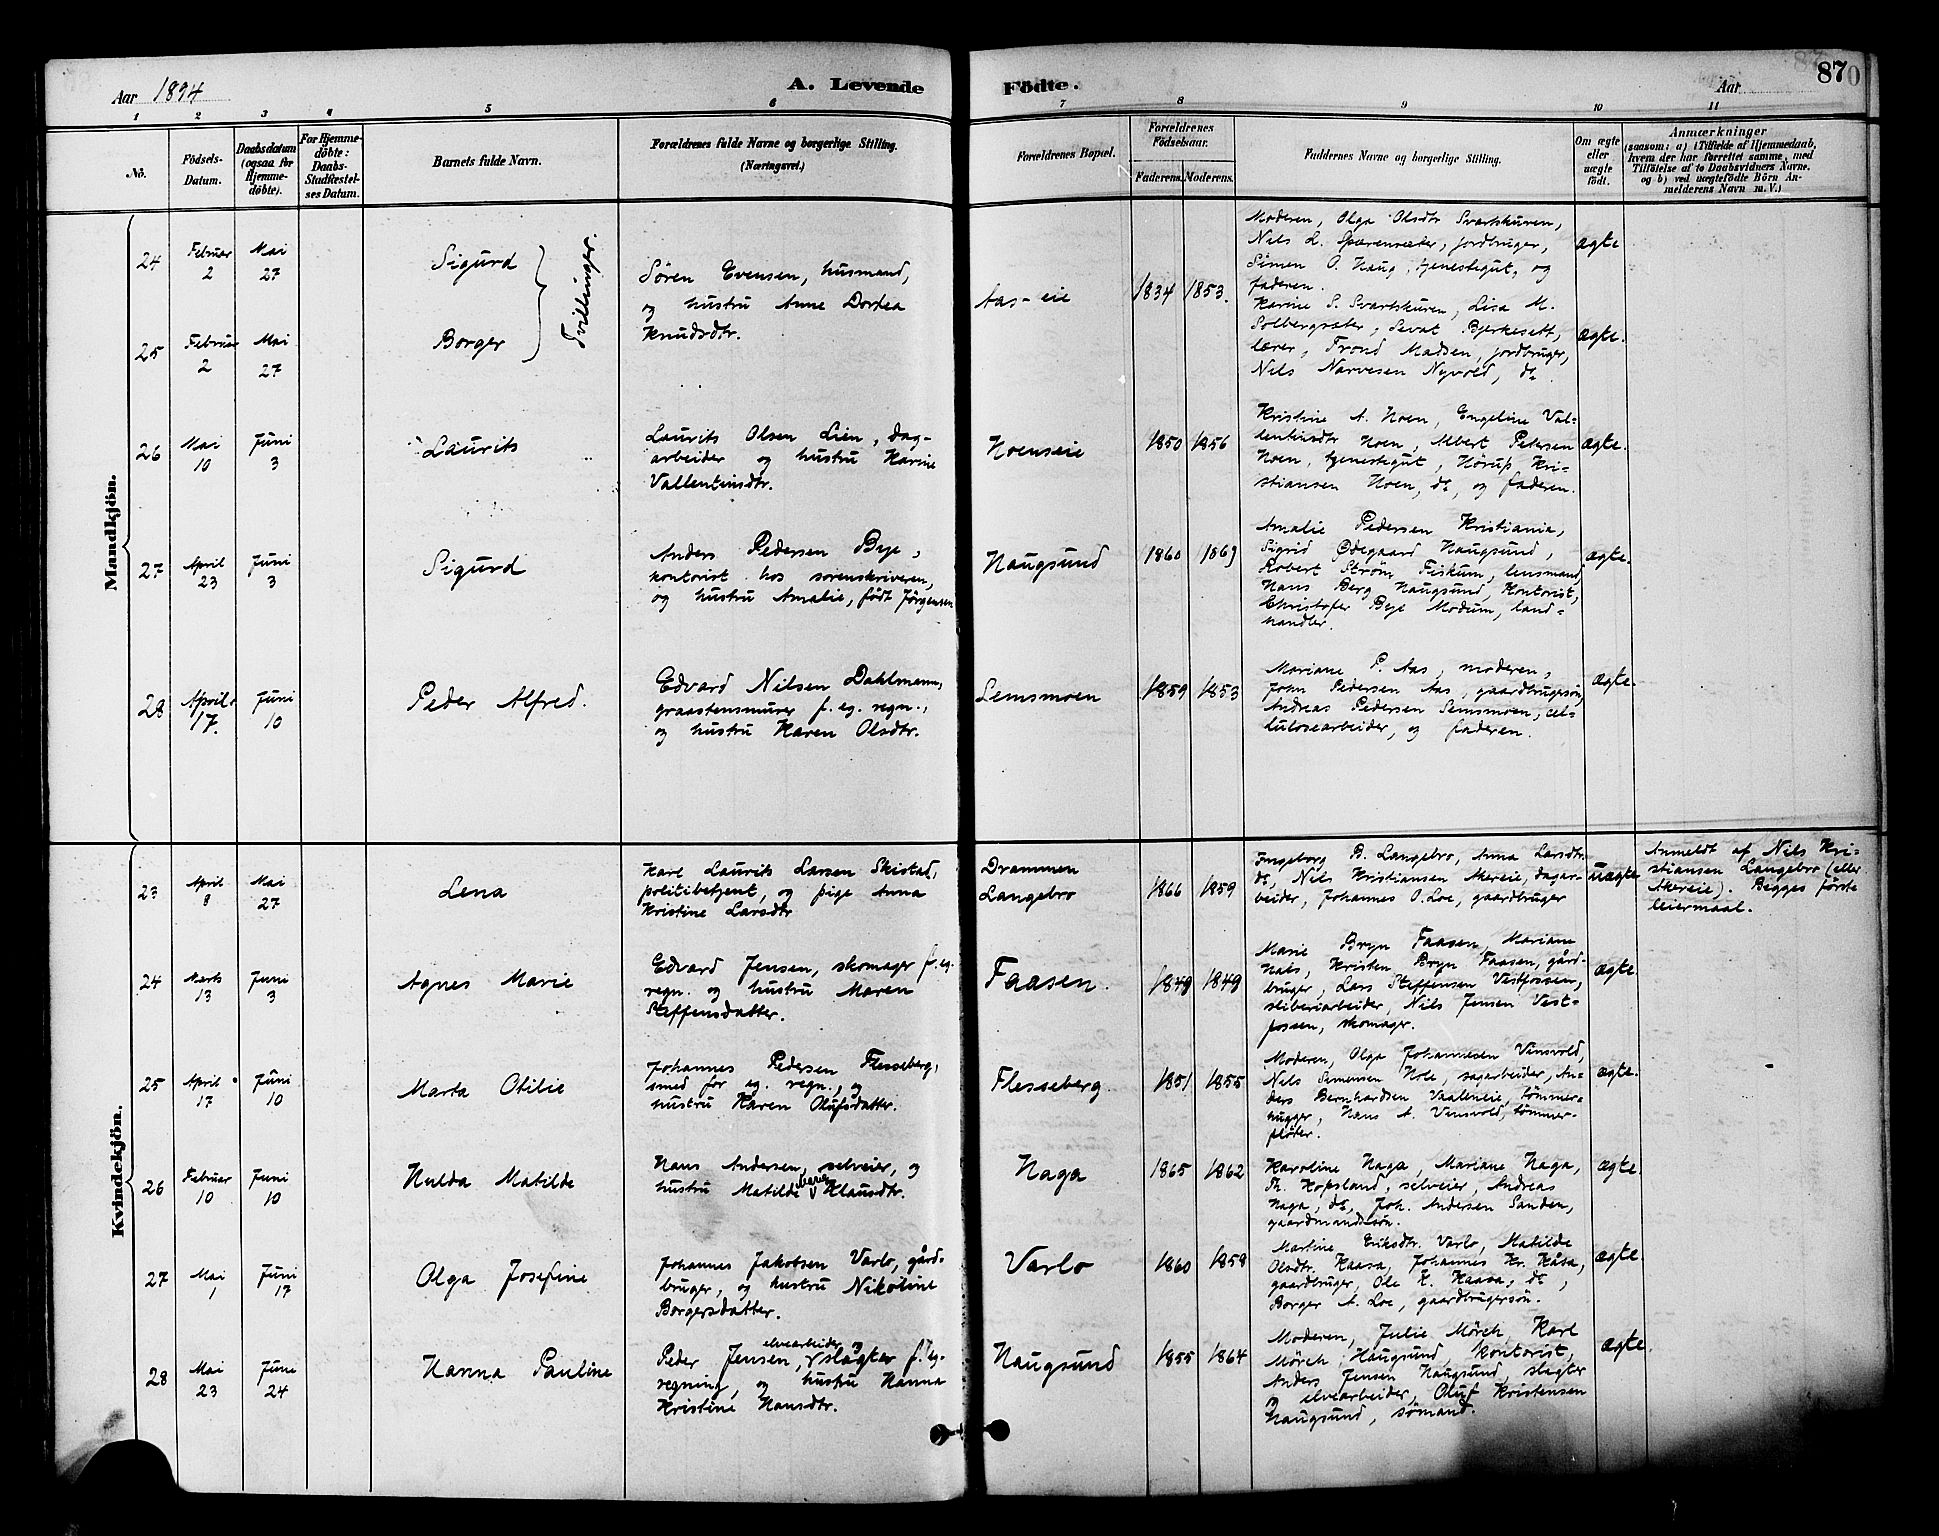 Aar 1894 A. Levende Födte. Aar 87
1 2 3 4 5 6 7 8 9 10 11
No. Födsels-Datum. Daabsdatum (ogsaa for Hjemmedöbte). For Hjemmedöbte: Daabs-Stadfæstelses Datum. Barnets fulde Navn. Forældrenes fulde Navne og borgerlige Stilling. (Næringsvei.) Forældrenes Bopæl. Forældrenes Födselsaar. Faderens. Moderens. Faddernes Navne og borgerlige Stilling. Om ægte eller uægte födt. Anmærkninger (saasom: a) i Tilfælde af Hjemmedaab, hvem der har forrettet samme, med Tilföielse af to Daabsvidners Navne, og b) ved uægtefödte Börn Anmelderens Navn m. V.)
Mandkjön.
24 Februar 2 Mai 27 Sigurd
25 Februar 2 Mai 27 Borger
Tvillinger.
Sören Evensen, husmand,
og hustru Anne Dortea
Knudsdtr.
Aas-eie 1834 1853.
Moderen, Olga Olsdtr Svartskuren,
Nils L. Spærensæter, jordbruger,
Simen O. Haug, tjenestegut, og
faderen.
ægte
Karine S. Svartskuren, Lisa M.
Solbergsæter, Sevat Bjerkesett,
lærer, Trond Madsen, jordbruger,
Nils Narvesen Nyvold, do
ægte.
26 Mai 10 Juni 3 Laurits
Laurits Olsen Lien, dag-
arbeider og hustru Karine
Vallentinsdtr.
Hoenseie 1850 1856
Kristine A. Hoen, Engeline Val-
lentinsdtr Hoen, Albert Petersen
Hoen, tjenestegut, Hörup Kri-
stiansen Hoen, do, og faderen.
ægte.
27 April 23 Juni 3 Sigurd
Anders Pedersen Bye,
kontorist hos sorenskriveren,
og hustru Amalie, födt Jörgensen
Haugsund 1860 1869
Amalie Pedersen Kristiania,
Sigrid Ødegaard Haugsund,
Robert Ström Fiskum, lensmand,
Hans Berg Haugsund, kontorist,
Christofer Bye Modum, land-
handler.
ægte.
28 April 17. Juni 10 Peder Alfred.
Edvard Nilsen Dahlmann,
graastensmurer f. eg. regn.,
og hustru Karen Olsdtr.
Semsmoen 1859 1853
Mariane P. Aas, moderen,
John Pedersen Aas, gaardbrugersön,
Andreas Pedersen Semsmoen, cel-
lulosearbeider, og faderen.
ægte.
Kvindekjön.
23 April 8 Mai 27 Lena
Karl Laurits Larsen Skistad,
politibetjent, og pige Anna
Kristine Larsdtr
Drammen
Langebro
1866 1859
Ingeborg B. Langebro, Anna Larsdtr.
do, Nils Kristiansen Akereie, dagar-
beider, Johannes O. Loe, gaardbruger
uægte
Anmeldt af Nils Kri-
stiansen Langebro (eller
Akereie). Begges förste
leiermaal.
24 Marts 13 Juni 3 Agnes Marie
Edvard Jensen, skomager f. eg.
regn. og hustru Maren
Steffensdatter.
Faasen. 1849 1849
Marie Bryn Faasen, Mariane
Hals, Kristen Bryn Faasen, gård-
bruger, Lars Steffensen Vestfossen,
sliberiarbeider, Nils Jensen Vest-
fossen, skomager.
ægte.
25 April 17 Juni 10 Marta Otilie
Johannes Pedersen Flesseberg,
smed for eg. regn., og
hustru Karen Olufsdatter.
Flesseberg. 1851 1855
Moderen, Olga Johannesen Vinsvold,
Nils Simensen Hole, sagarbeider, An-
ders Bernhardsen Vaaleneie, tömmer-
hugger, Hans A. Vinsvold, tömmer-
flöter.
ægte.
26 Februar 10 Juni 10 Hulda Matilde
Hans Andersen, selveier, og
hustru Matilde Marie Klausdtr.
Haga 1865 1862
Karoline Haga, Mariane Haga,
Th. Hopsland, selveier, Andreas
Haga, do, Joh. Andersen Sanden,
gaardmandssön.
ægte.
27 Mai 1 Juni 17 Olga Josefine
Johannes Jakobsen Varlo, gård-
bruger, og hustru Nikoline
Borgersdatter.
Varlo 1860 1859
Martine Eriksdtr. Varlo, Matilde
Olsdtr. Kaasa, Johannes Kr. Kåsa,
gaardbruger, Ole K. Kaasa, do,
Borger A. Loe, gaardbrugersön.
ægte.
28 Mai 23 Juni 24 Hanna Pauline
Peder Jensen, elvearbeider og slagter f. eg.
regning, og hustru Hanna
Kristine Hansdtr.
Haugsund 1855 1864
Moderen, Julie Mörch, Karl
Mörch, Haugsund, kontorist,
Anders Jensen Haugsund, slagter
og elvearbeider, Oluf Kristensen
Haugsund, sömand.
ægte.